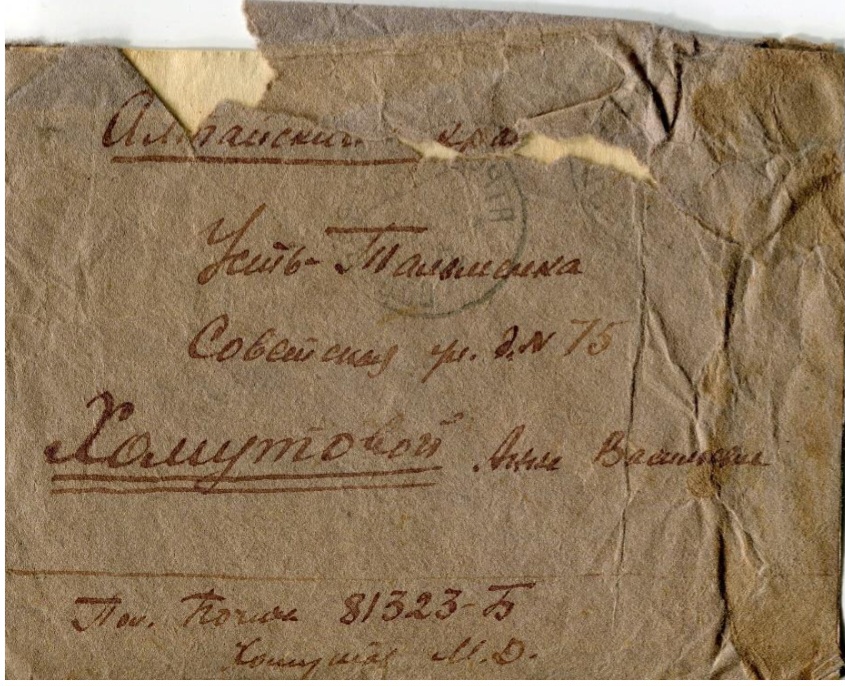 Алтайский край
Усть-Тальменка
Советская ул. д. № 75
Хомутовой Анне Васильевне
Пол. Почта 81323-Б
Хомутов М.Д.